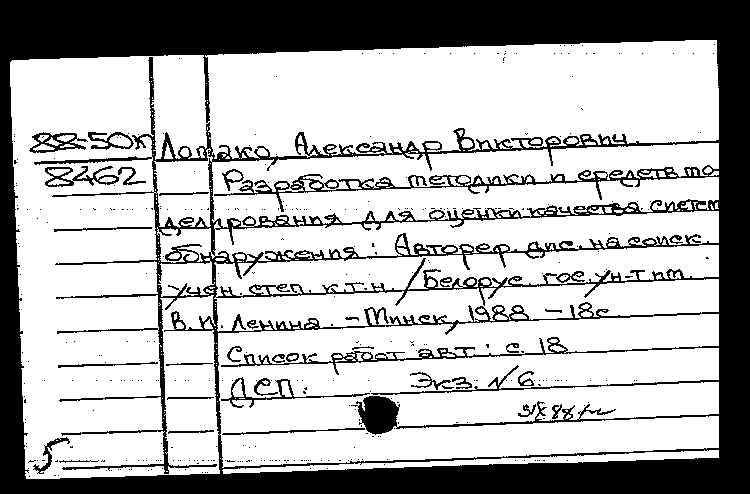 88-50к Лотако, Александр Викторович.
8462 Разработка методики и средств мо-
делирования для оценки качества систем
обнаружения : Автореф. дис. на соиск.
учен. степ. к.т.н. / Белорус. гос. ун-т им.
В. И. Ленина. - Минск, 1988 - 18с.
Список работ авт. : с. 18
ДСП. Экз. № 6.
5